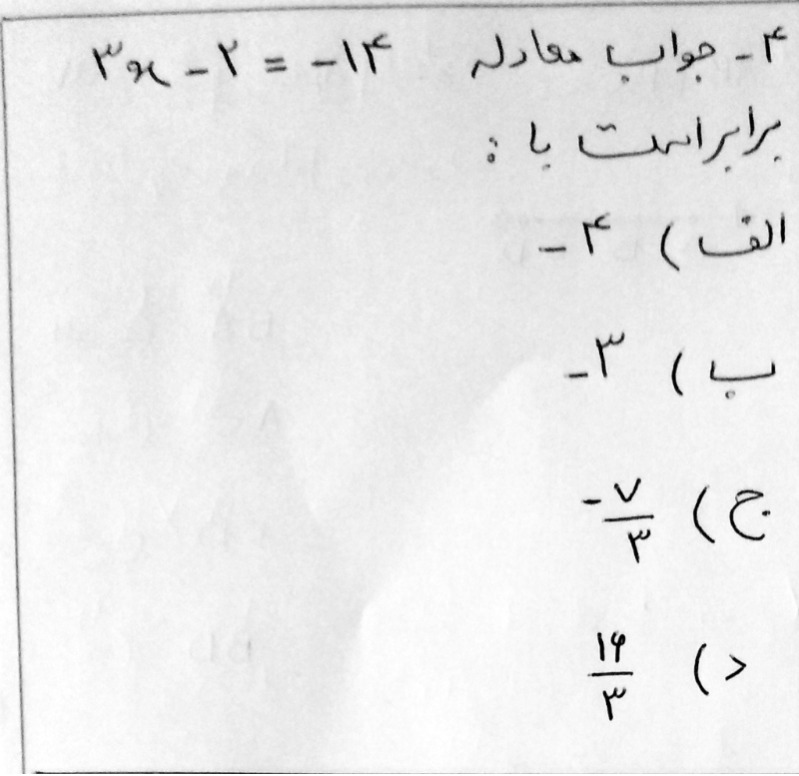 ۴- جواب معادله ۳x - ۲ = -۱۴
برابر است با :
الف ) -۴
ب ) -۳
ج ) -۷/۳
د ) ۱۶/۳